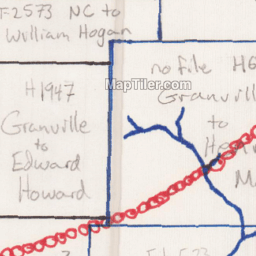 F2573 NC to
William Hogan
H1947
Granville
to
Edward
Howard
no file
Granvill
to
MapTiler.com